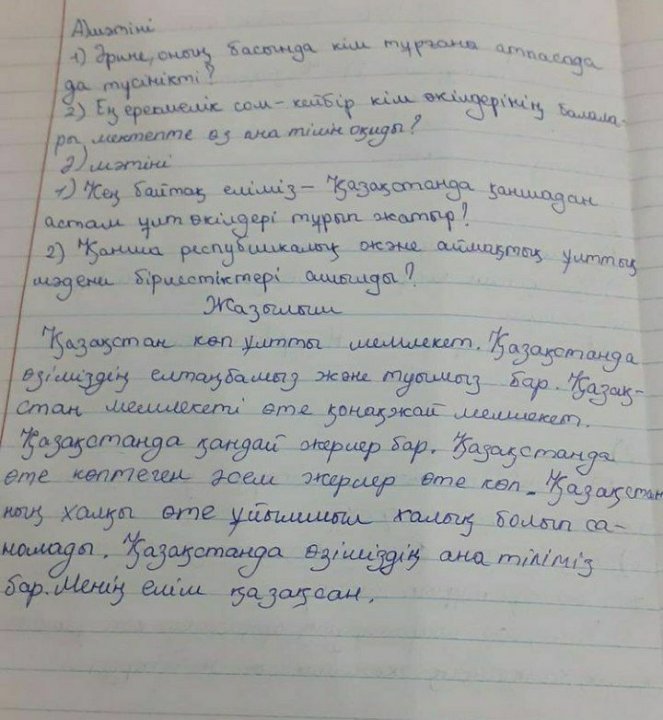 А)мәтіні
1) Әрине, оның басында кім тұрғаны атпасада
да түсінікті?
2) Ең ерекмелік сом-кейбір кім өкілдерінің балала-
ры, мектепте өз ана тілін оқиды?
Ә)мәтіні
1) Кең байтақ еліміз - Қазақстанда қаншадан
астам ұлт өкілдері тұрып жатыр?
2) Қанша республикалық және аймақтық ұлттық
мәдени бірлестіктері ашылды?
Жазылым
Қазақстан көп ұлтты мемлекет. Қазақстанда
өзіміздің елтаңбамыз және туымыз бар. Қазақ-
стан мемлекеті өте қонақжай мемлекет.
Қазақстанда қандай жерлер бар. Қазақстанда
өте көптеген әсем жерлер өте көп. Қазақстан
ның халқы өте ұйымшыл халық болып са-
налады. Қазақстанда өзіміздің ана тіліміз
бар. Менің елім қазақсан.